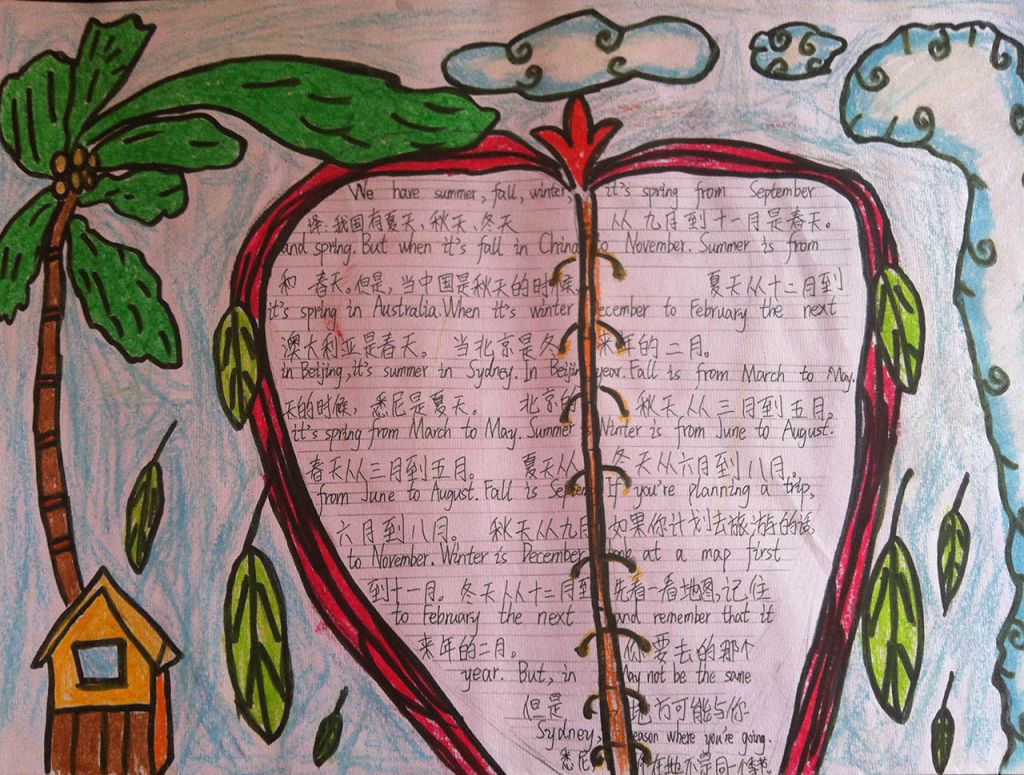 We have summer, fall, winter,
译:我国有夏天、秋天、冬天
and spring. But when it's fall in China
和 春天。但是,当中国是秋天的时候,
it's spring in Australia. When it's winter
澳大利亚是春天。 当北京是冬
in Beijing, it's summer in Sydney. In Beijing
天的时候,悉尼是夏天。 北京的
it's spring from March to May. Summer is
春天从三月到五月。 夏天从
from June to August. Fall is
六月到八月。 秋天从九月
to November. Winter is December
到十一月。冬天从十二月到
to February the next
来年的二月。
year. But, in
但是
Sydney,
悉尼,
it's spring from September
从九月到十一月是春天。
to November. Summer is from
夏天从十二月到
December to February the next
来年的二月。
year. Fall is from March to May.
秋天从三月到五月。
Winter is from June to August.
冬天从六月到八月。
If you're planning a trip,
如果你计划去旅游的话,
look at a map first
先看一看地图,记住
and remember that it
你要去的那个
May not be the same
地方可能与你
season where you're going.
不是同一个季节。